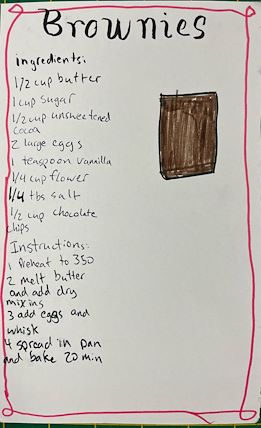 Brownies
ingredients:
1/2 cup butter
1 cup sugar
1/2 cup unsweetened
cocoa
2 large eggs
1 teaspoon vanilla
1/4 cup flower
1/4 tbs salt
1/2 cup chocolate
chips
Instructions:
1 Preheat to 350
2 melt butter
and add dry
mixins
3 add eggs and
whisk
4 spread in pan
and bake 20 min